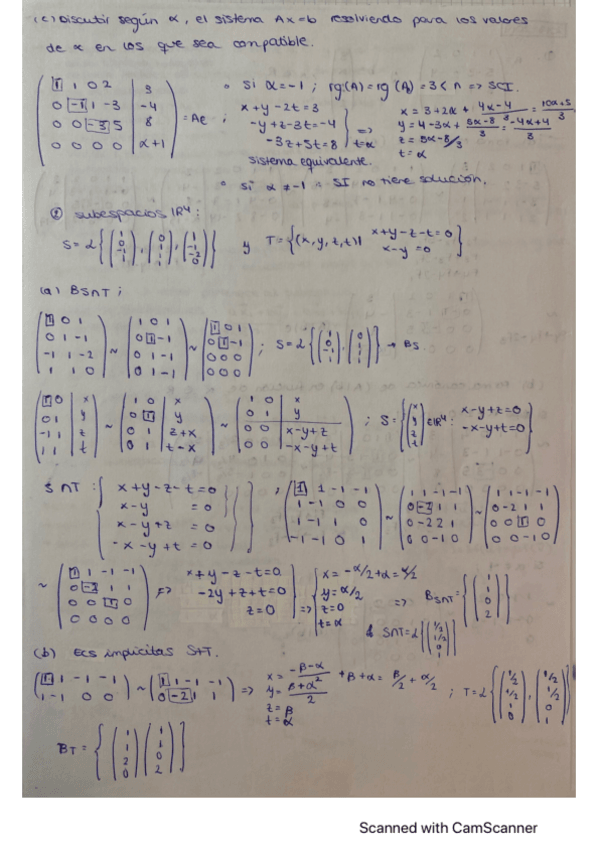 (c) Discutir según α, el sistema Ax=b resolviendo para los valores
de α en los que sea compatible.
1 1 0 2 | 9
0 -1 1 -3 | -4
0 0 -3 5 | 8
0 0 0 0 | α+1
= AE ;
• si α=-1 ; rg(A)=rg(A)=3<n => SCI.
x+y-2t=3
-y+z-3t=-4
-3z+5t=8
t=α
=>
x = 3+2α+
4-3α+
t = α
sistema equivalente.
• si α ≠ -1 : SI no tiene solución.
② subespacios IR⁴:
S = L {(1 0 -1 1), (0 1 1 1), (1 -1 -2 0)} y T = {(x,y,z,t) | x+y-z-t=0 x-y=0}
(a) B S∩T ;
1 0 1
0 1 -1
-1 1 -2
1 1 0
~
1 0 1
0 1 -1
0 1 -1
0 1 -1
~
1 0 1
0 1 -1
0 0 0
0 0 0
; S = L {(1 0 -1 1), (0 1 1 1)} → Bs.
1 0 | x
0 1 | y
-1 1 | z
1 1 | t
~
1 0 | x
0 1 | y
0 1 | z+x
0 1 | t-x
~
1 0 | x
0 1 | y
0 0 | x-y+z
0 0 | -x-y+t
; S = {(x y z t) ∈ IR⁴ : x-y+z=0 -x-y+t=0}
S∩T :
x+y-z-t=0
x-y =0
x-y+z =0
-x-y+t=0
;
1 1 -1 -1
1 -1 0 0
1 -1 1 0
-1 -1 0 1
~
1 1 -1 -1
0 -2 1 1
0 -2 2 1
0 0 -1 0
~
1 1 -1 -1
0 -2 1 1
0 0 1 0
0 0 -1 0
~
1 1 -1 -1
0 -2 1 1
0 0 1 0
0 0 0 0
=>
x+y-z-t=0
-2y+z+t=0
z=0
=>
x = -α/2+α = α/2
y = α/2
z=0
t=α
=> B S∩T = {(1 1 0 2)}
S∩T = L {(1/2 1/2 0 1)}
(b) Ecs implícitas S+T.
1 1 -1 -1
1 -1 0 0
~
1 1 -1 -1
0 -2 1 1
=>
x = -β-α/2 + β+α = β/2 + α/2
y = β+α/2
z = β
t = α
; T = L {(1/2 1/2 1 0), (1/2 1/2 0 1)}
BT = {(1 1 2 0) (1 1 0 2)}
Scanned with CamScanner